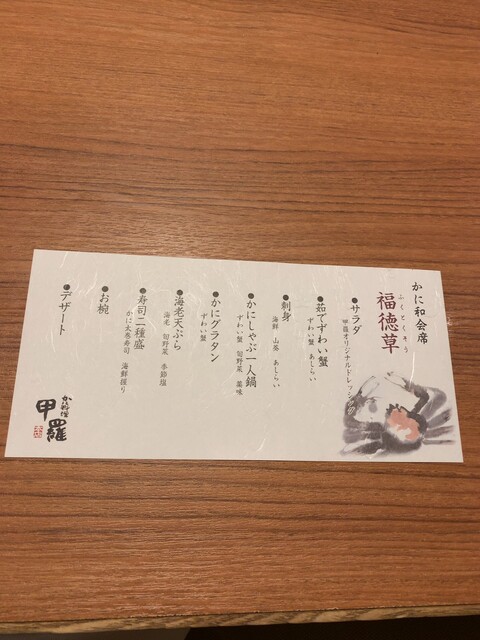 かに和会席
福徳草
ふくとくそう
●サラダ
甲羅オリジナルドレッシング
●茹でずわい蟹
ずわい蟹　あしらい
●刺身
海鮮　山葵　あしらい
●かにしゃぶ一人鍋
ずわい蟹　旬野菜　薬味
●かにグラタン
ずわい蟹
●海老天ぷら
海老　旬野菜　季節塩
●寿司二種盛
かに太巻寿司　海鮮握り
●お椀
●デザート
甲羅